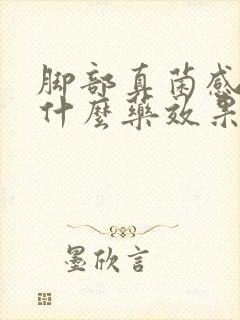 脚部真菌感
什麼藥效果
墨欣言